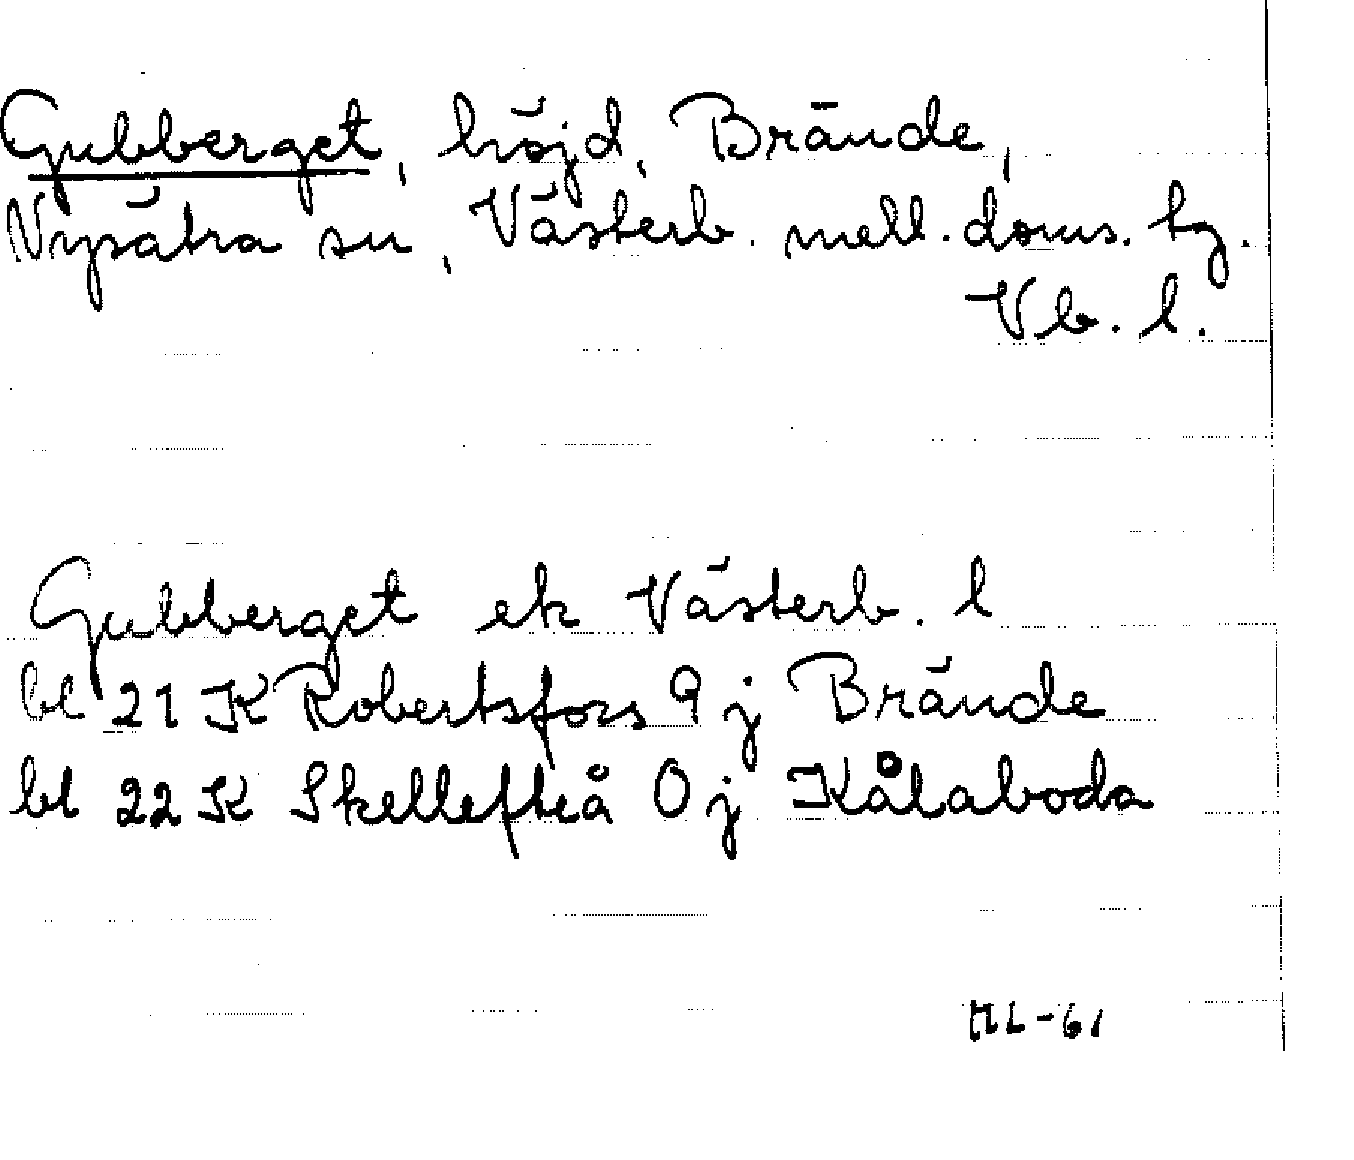 Gubberget, höjd, Brände,
Nysätra sn, Västerb. mell. doms. tg.
Vb. l.
Gubberget ek Västerb. l
bl 21 K Robertsfors 9 j Brände
bl 22 K Skellefteå 0 j Kålaboda
ML-61